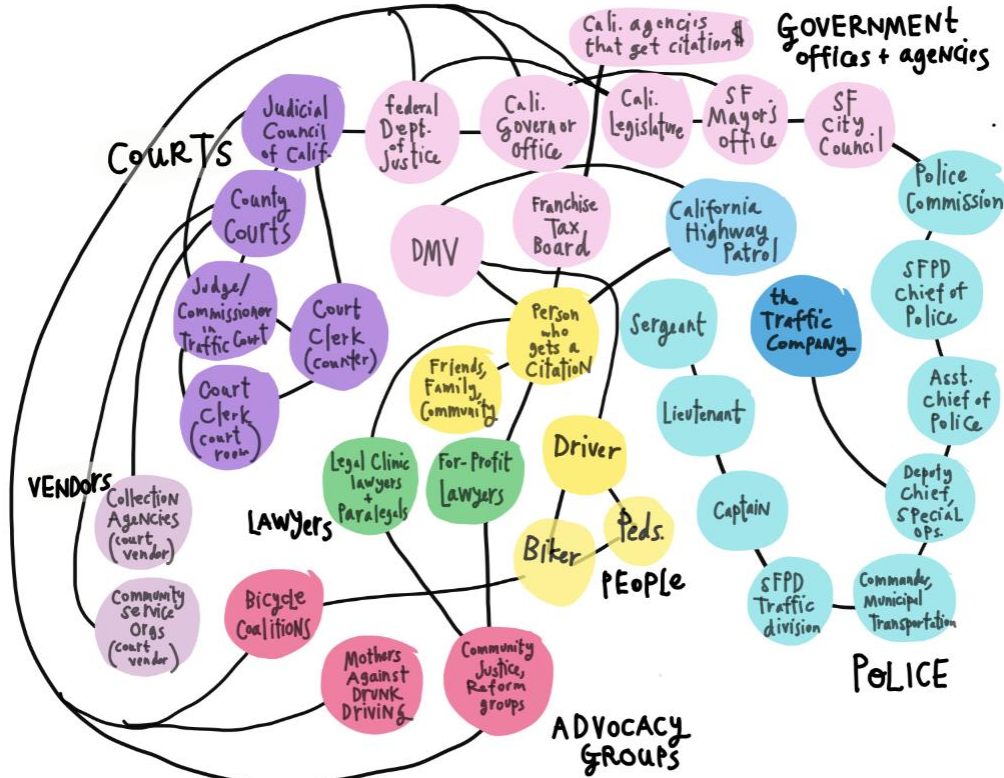 Cali. agencies
that get citation $
GOVERNMENT
offices + agencies
COURTS
Judicial
Council
of Calif.
federal
Dept.
of
Justice
Cali.
Governor
office
Cali.
Legislature
SF
Mayor's
office
SF
City
Council
County
Courts
DMV
Franchise
Tax
Board
California
Highway
Patrol
Police
Commission
Judge/
Commissioner
in
Traffic Court
Court
Clerk
(counter)
Person
who
gets a
Citation
Sergeant
the
Traffic
Company
SFPD
Chief of
Police
Friends,
Family,
Community
Court
Clerk
(court
room)
Lieutenant
Asst.
chief of
Police
VENDORS
Collection
Agencies
(court
vendor)
LAWYERS
Legal Clinic
lawyers
+
Paralegals
For-Profit
Lawyers
Driver
Captain
Deputy
Chief,
Special
ops.
Biker
Peds.
PEOPLE
Community
Service
Orgs
(court
vendor)
Bicycle
Coalitions
SFPD
Traffic
division
Commander,
Municipal
Transportation
POLICE
Mothers
Against
Drunk
Driving
Community
Justice,
Reform
groups
ADVOCACY
GROUPS